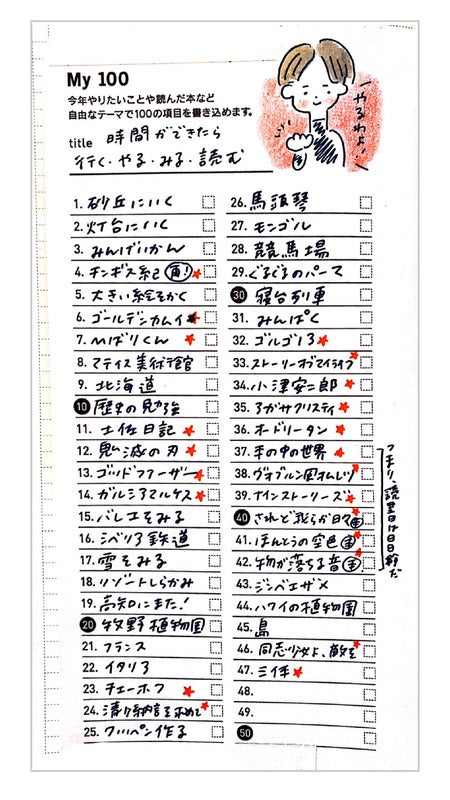 My 100
今年やりたいことや読んだ本など
自由なテーマで100の項目を書き込めます。
title 時間ができたら
行く・やる・みる・読む
やるわよ!
1. 砂丘にいく
2. 灯台にいく
3. みんげいかん
4. チンギス紀 再!
5. 大きい絵をかく
6. ゴールデンカムイ
7. 
8. マティス美術館
9. 北海道
10 歴史の勉強
11. 土佐日記
12. 鬼滅の刃
13. ゴッドファーザー
14. ガルシアマルケス
15. バレエをみる
16. シベリア鉄道
17. 雪をみる
18. リゾートしらかみ
19. 高知にまた!
20 牧野植物園
21. フランス
22. イタリア
23. チェーホフ
24. 清少納言を求めて
25. ワルペン作る
26. 馬頭琴
27. モンゴル
28. 競馬場
29. ぐるぐるのパーマ
30 寝台列車
31. みんぱく
32. ゴルゴ13
33. ストーリーオブマイライフ
34. 小津安二郎
35. アガサクリスティ
36. オードリータン
37. 手の中の世界
38. ヴォブルン風オムレツ
39. ナインストーリーズ
40 されど我らが日々
41. ほんとうの空色
42. 物が落ちる音
43. ジンベエザメ
44. ハワイの植物園
45. 島
46. 同志少女よ、敵を
47. 三体
48.
49.
50
つまり、読書日は日日新だ